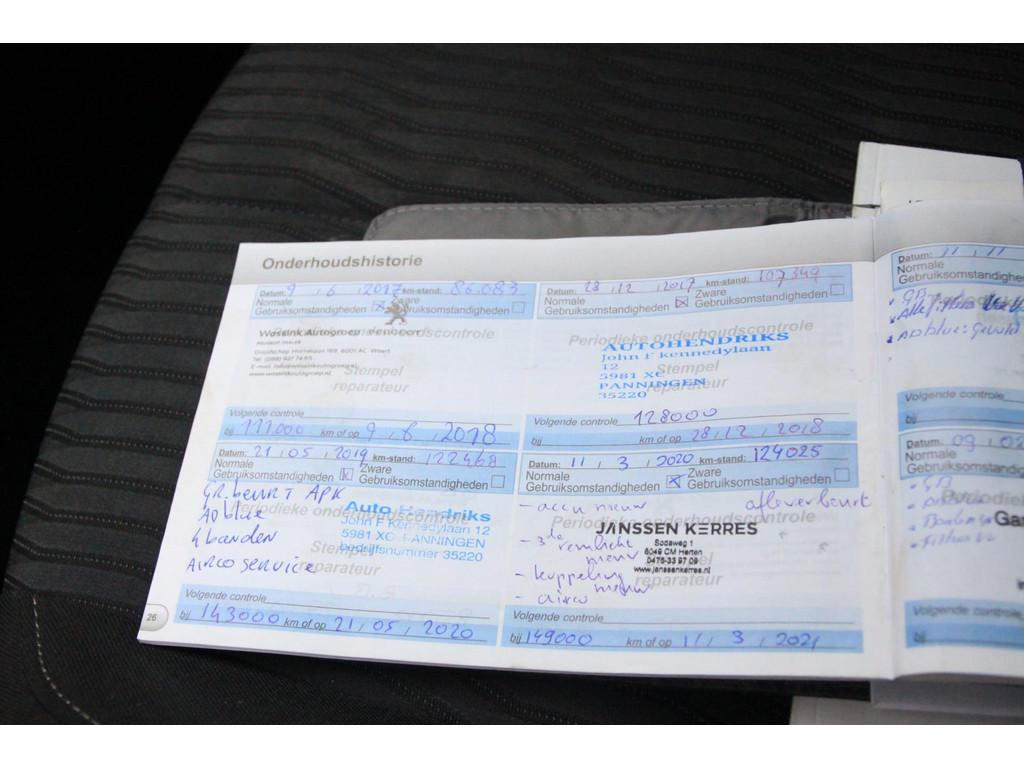 Onderhoudshistorie
Datum: 9 , 6 , 2017 km-stand: 86.083
Normale Zware
Gebruiksomstandigheden Gebruiksomstandigheden
Periodieke onderhoudscontrole
Wassink Autogroep
Graafschap Hornelaan 169, 6001 AC. Weert.
Stempel
reparateur
Volgende controle
bij 111.000 km of op 9 , 6 , 2018
Datum: 28 , 12 , 2017 km-stand: 107349
Normale Zware
Gebruiksomstandigheden Gebruiksomstandigheden
Periodieke onderhoudscontrole
AUTOHENDRIKS
John F kennedylaan
12
5981 XC
PANNINGEN
35220
Stempel
reparateur
Volgende controle 128000
bij km of op 28 , 12 , 2018
Datum: 21 , 05 , 2019 km-stand: 122468
Normale Zware
Gebruiksomstandigheden Gebruiksomstandigheden
GR. beurt APK
Periodieke onderhoudscontrole
Adblue
4 banden
Airco service
Auto Hendriks
John F Kennedylaan 12
5981 XC PANNINGEN
bedrijfsnummer 35220
Stempel
reparateur
Volgende controle
bij 143000 km of op 21 , 05 , 2020
26
Datum: 11 , 3 , 2020 km-stand: 124025
Normale Zware
Gebruiksomstandigheden Gebruiksomstandigheden
- accu nieuw afleverbeurt
Periodieke onderhoudscontrole
- 3de remlicht
nieuw
- koppeling
nieuw
- airco
JANSSEN KERRES
Sodaweg 1
6049 CM Herten
0475-33 97 09
www.janssenkerres.nl
reparateur
Volgende controle
bij 149000 km of op 11 , 3 , 2021
Datum: 11 , 11
Normale
Gebruiksomstandighede
Adblue: gevuld
Volgende controle
bij
Datum: 09 , 02
Normale
Gebruiksomstandighede
Periodieke
Volgende controle
bij